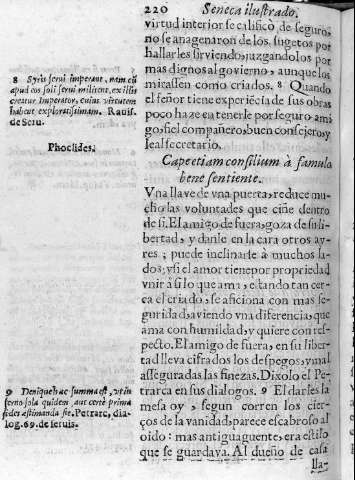 220 Seneca ilustrado.
virtud interior se calificò de seguro,
no se anagenaron de los sugetos por
hallarles sirviendo, juzgandolos por
mas dignos al govierno, aunque los
mirassen como criados. 8 Quando
el señor tiene experiẽcia de sus obras
poco haze en tenerle por seguro amigo,
fiel compañero, buen consejero, y
leal secretario.
Cape etiam consilium à famulo
bene sentiente.
Vna llave de vna puerta, reduce mucho
las voluntades que ciñe dentro
de si. El amigo de fuera, goza de su libertad,
y danle en la cara otros ayres
; puede inclinarse à muchos lados;
y si el amor tiene por propriedad
vnir à si lo que ama, estando tan cerca
el criado, se aficiona con mas seguridad,
aviendo vna diferencia, que
ama con humildad, y quiere con respecto.
El amigo de fuera, en su libertad
lleva cifrados los despegos, y mal
asseguradas las finezas. Dixolo el Petrarca
en sus dialogos. 9 El darles la
mesa oy, segun corren los cierços
de la vanidad, parece escabroso al
oido: mas antiguaguente, era estilo
que se guardava. Al dueño de casa
lla-
8 Syris servi imperant, nam cũ
apud eos soli servi militent, ex illis
creatur Imperator, cuius virtutem
habent exploratissimam. Ravis.
de Seru.
Phoclides.
9 Denique hac summa est, vt in
servo sola quidem aut certè prima
fides æstimanda sit. Petrarc, dialog.
69. de seruis.